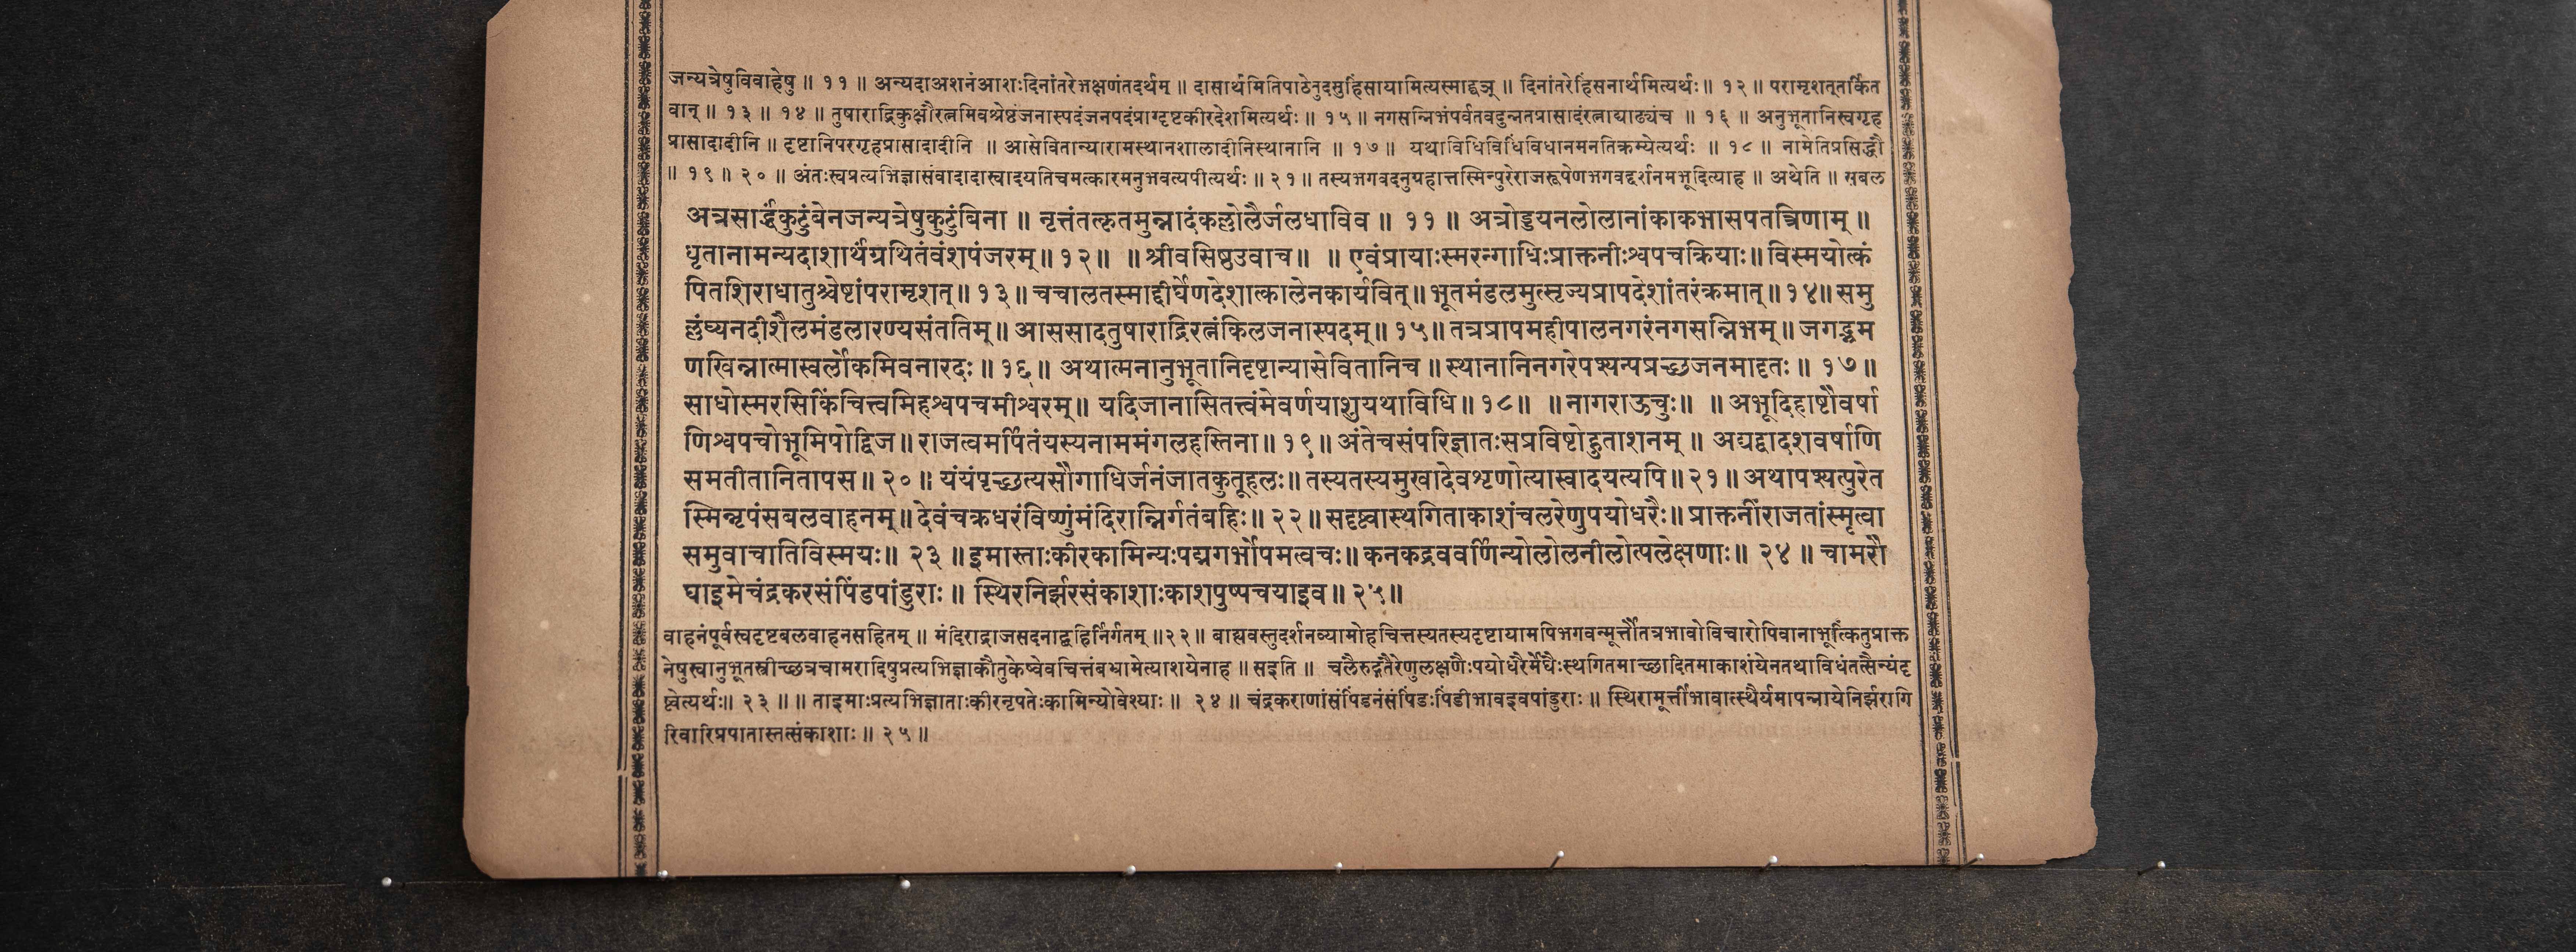 जन्यत्रेषुविवाहेषु ॥ ११ ॥ अन्यदाअशनंआशःदिनांतरेभक्षणंतदर्थम् ॥ दासार्थमितिपाठेनुदसुहिंसायामित्यस्माद्घञ् ॥ दिनांतरेहिंसनार्थमित्यर्थः ॥ १२ ॥ परामृशत्तर्कित
वान् ॥ १३ ॥ १४ ॥ तुषाराद्रिकुक्षौरत्नमिवश्रेष्ठंजनास्पदंजनपदंप्राग्दृष्टकीरदेशमित्यर्थः ॥ १५ ॥ नगसन्निभंपर्वतवदुन्नतप्रासादंरत्नाद्याढ्यंच ॥ १६ ॥ अनुभूतानिस्वगृह
प्रासादादीनि ॥ दृष्टानिपरगृहप्रासादादीनि ॥ आसेवितान्यारामस्थानशालादीनिस्थानानि ॥ १७ ॥ यथाविधिविधिंविधानमनतिक्रम्येत्यर्थः ॥ १८ ॥ नामेतिप्रसिद्धौ
॥ १९ ॥ २० ॥ अंतःस्वप्रत्यभिज्ञासंवादादास्वादयतिचमत्कारमनुभवत्यपीत्यर्थः ॥ २१ ॥ तस्यभगवदनुग्रहात्तस्मिन्पुरेराजरूपेणभगवद्दर्शनमभूदित्याह ॥ अथेति ॥ सबल
अत्रसार्द्धंकुटुंबेनजन्यत्रेषुकुटुंबिना ॥ नृत्तंतत्कृतमुन्नादंकल्लोलैर्जलधाविव ॥ ११ ॥ अत्रोड्डयनलोलानांकाकभासपतत्रिणाम् ॥
धृतानामन्यदाशार्थंग्रथितंवंशपंजरम् ॥ १२ ॥ ॥ श्रीवसिष्ठउवाच ॥ ॥ एवंप्रायाःस्मरन्गाधिःप्राक्तनीःश्वपचक्रियाः ॥ विस्मयोत्कं
पितशिराधातुश्चेष्टांपरामृशत् ॥ १३ ॥ चचालतस्माद्दीर्घेणदेशात्कालेनकार्यवित् ॥ भूतमंडलमुत्सृज्यप्रापदेशांतरंक्रमात् ॥ १४ ॥ समु
ल्लंघ्यनदीशैलमंडलारण्यसंततिम् ॥ आससादतुषाराद्रिरत्नंकिलजनास्पदम् ॥ १५ ॥ तत्रप्रापमहीपालनगरंनगसन्निभम् ॥ जगद्भ्रम
णखिन्नात्मास्वर्लोकमिवनारदः ॥ १६ ॥ अथात्मनानुभूतानिदृष्टान्यासेवितानिच ॥ स्थानानिनगरेपश्यन्पप्रच्छजनमादृतः ॥ १७ ॥
साधोस्मरसिकिंचित्त्वमिहश्वपचमीश्वरम् ॥ यदिजानासितत्त्वंमेवर्णयाशुयथाविधि ॥ १८ ॥ ॥ नागराऊचुः ॥ ॥ अभूदिहाष्टौवर्षा
णिश्वपचोभूमिपोद्विज ॥ राजत्वमर्पितंयस्यनाममंगलहस्तिना ॥ १९ ॥ अंतेचसंपरिज्ञातःसप्रविष्टोहुताशनम् ॥ अद्यद्वादशवर्षाणि
समतीतानितापस ॥ २० ॥ यंयंपृच्छत्यसौगाधिर्जनंजातकुतूहलः ॥ तस्यतस्यमुखादेवशृणोत्यास्वादयत्यपि ॥ २१ ॥ अथापश्यत्पुरेत
स्मिन्नृपंसबलवाहनम् ॥ देवंचक्रधरंविष्णुंमंदिरान्निर्गतंबहिः ॥ २२ ॥ सदृष्ट्वास्थगिताकाशंचलरेणुपयोधरैः ॥ प्राक्तनींराजतांस्मृत्वा
समुवाचातिविस्मयः ॥ २३ ॥ इमास्ताःकीरकामिन्यःपद्मगर्भोपमत्वचः ॥ कनकद्रववर्णिन्योलोलनीलोत्पलेक्षणाः ॥ २४ ॥ चामरौ
घाइमेचंद्रकरसंपिंडपांडुराः ॥ स्थिरनिर्झरसंकाशाःकाशपुष्पचयाइव ॥ २५ ॥
वाहनंपूर्वस्वदृष्टबलवाहनसहितम् ॥ मंदिराद्राजसदनाद्बहिर्निर्गतम् ॥२२॥ बाह्यवस्तुदर्शनव्यामोहचित्तस्यतस्यदृष्टायामपिभगवन्मूर्त्तौतत्रभावोविचारोपिवानाभूत्किंतुप्राक्त
नेषुस्वानुभूतस्त्रीच्छत्रचामरादिषुप्रत्यभिज्ञाकौतुकेष्वेवचित्तंबभ्रामेत्याशयेनाह ॥ सइति ॥ चलैरुद्गतैरेणुलक्षणैःपयोधरैर्मेघैःस्थगितमाच्छादितमाकाशंयेनतथाविधंतत्सैन्यंदृ
ष्ट्वेत्यर्थः ॥ २३ ॥ ॥ ताइमाःप्रत्यभिज्ञाताःकीरनृपतेःकामिन्योवेश्याः ॥ २४ ॥ चंद्रकराणांसंपिंडनंसंपिंडःपिंडीभावइवपांडुराः ॥ स्थिरामूर्त्तीभावात्स्थैर्यमापन्नायेनिर्झरागि
रिवारिप्रपातास्तत्संकाशाः ॥ २५ ॥